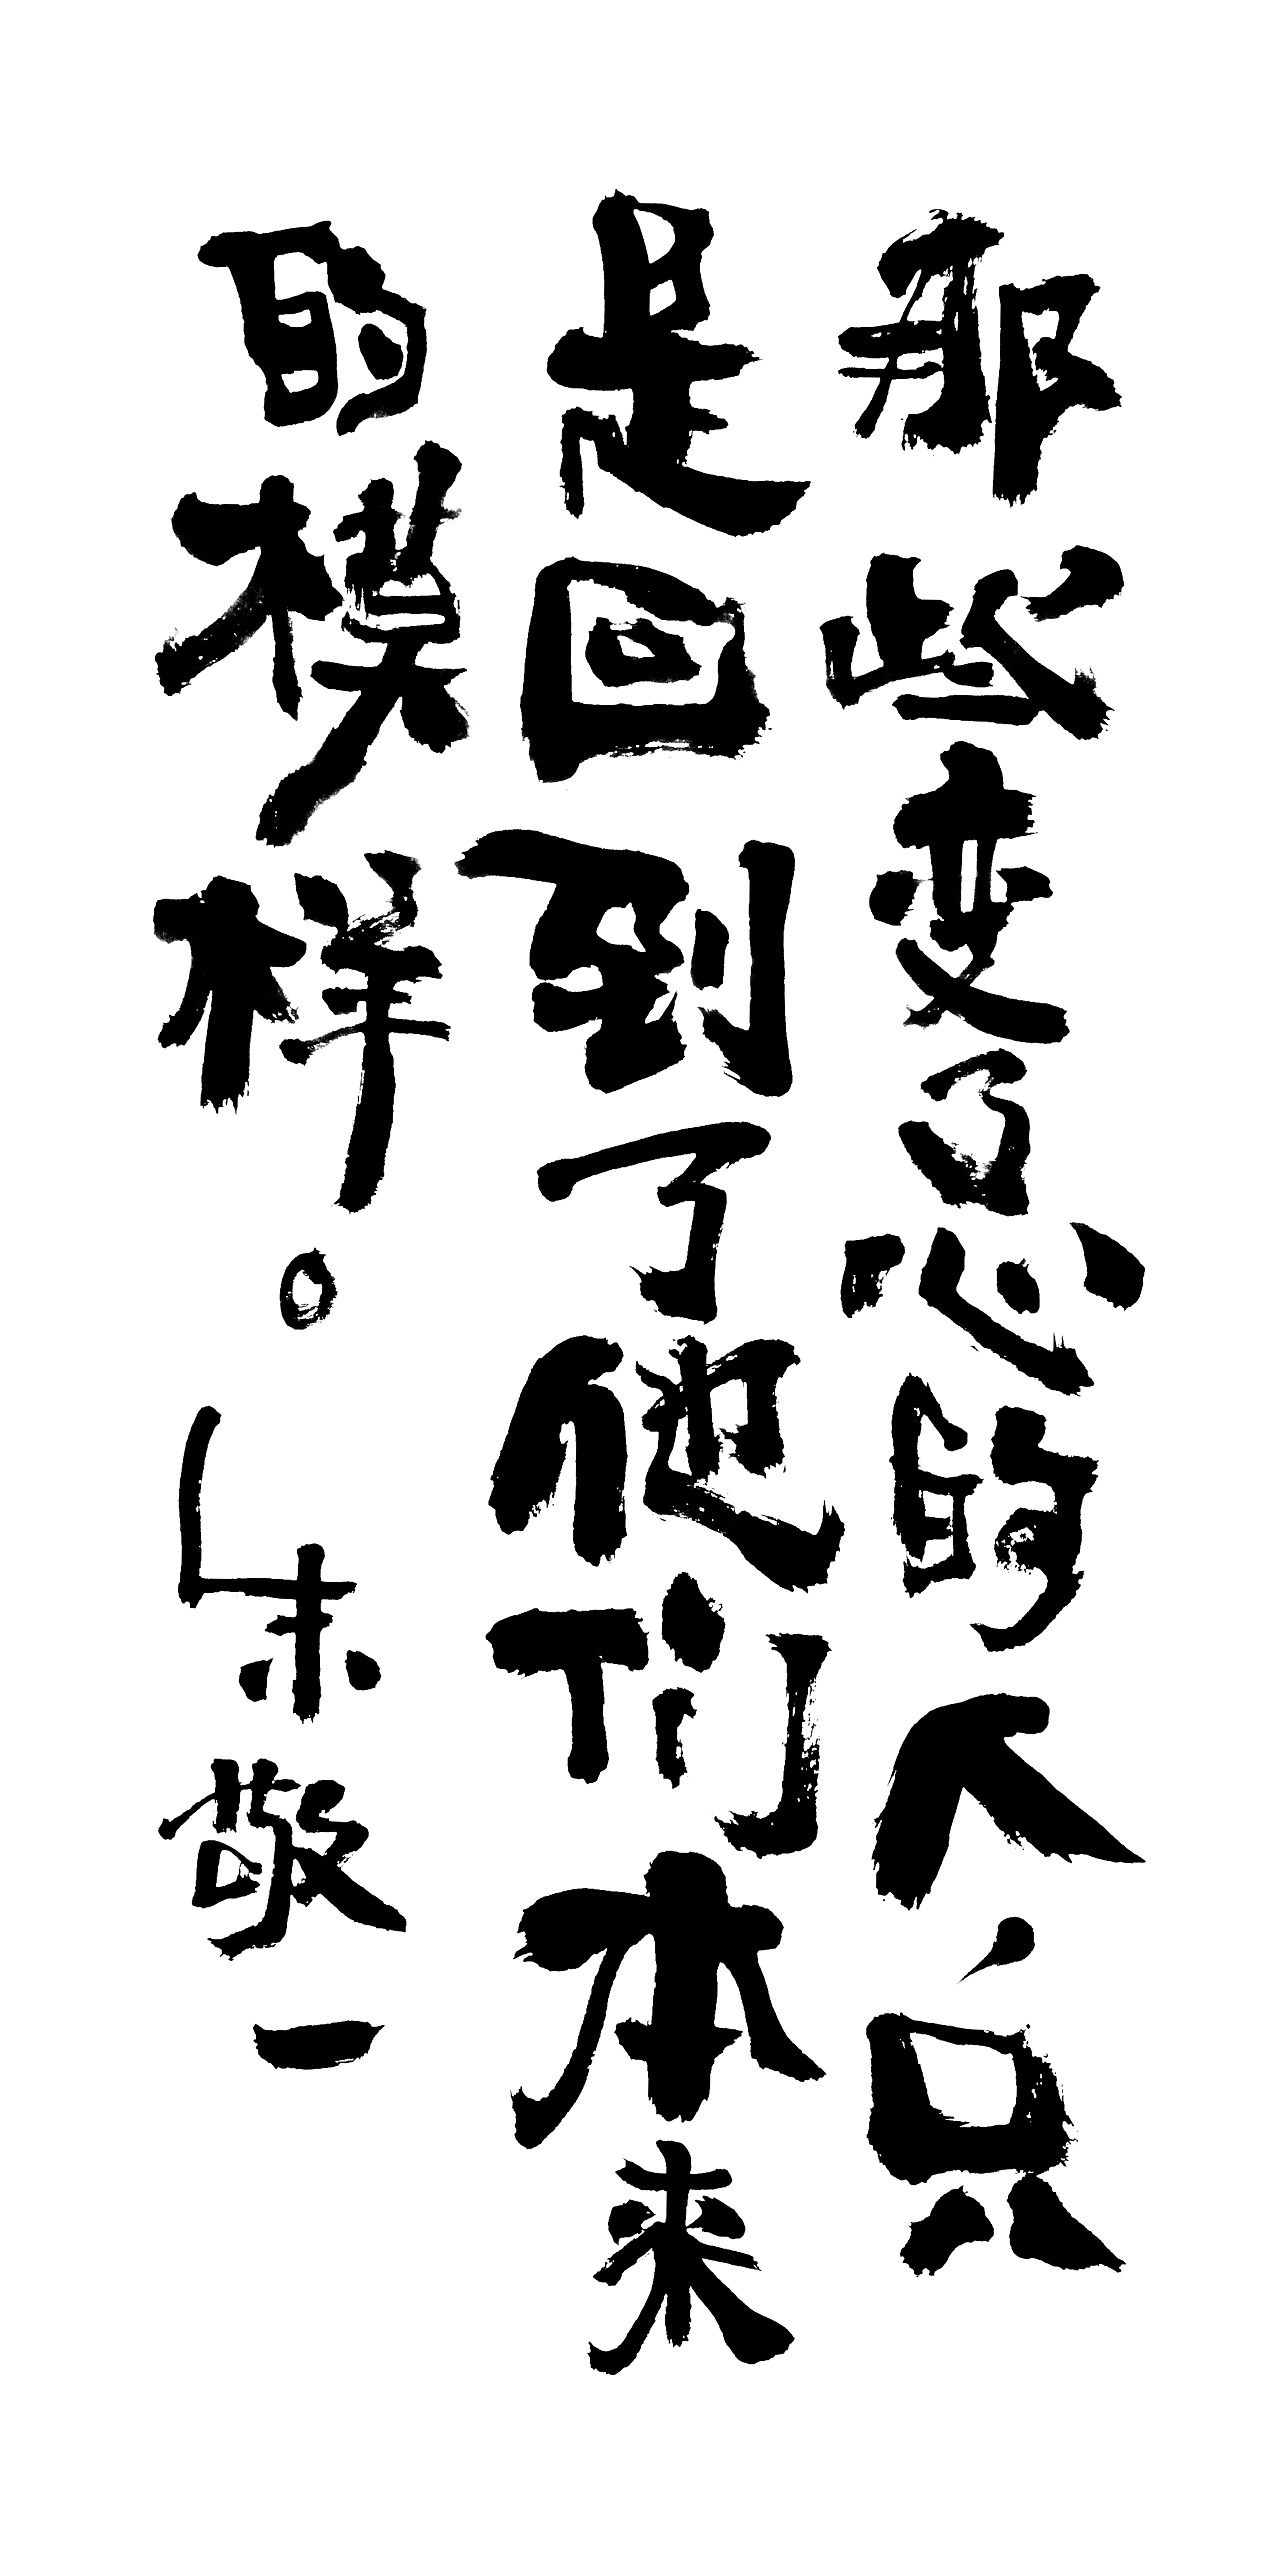 那些变了心的人，只
是回到了他们本来
的模样。朱敬一